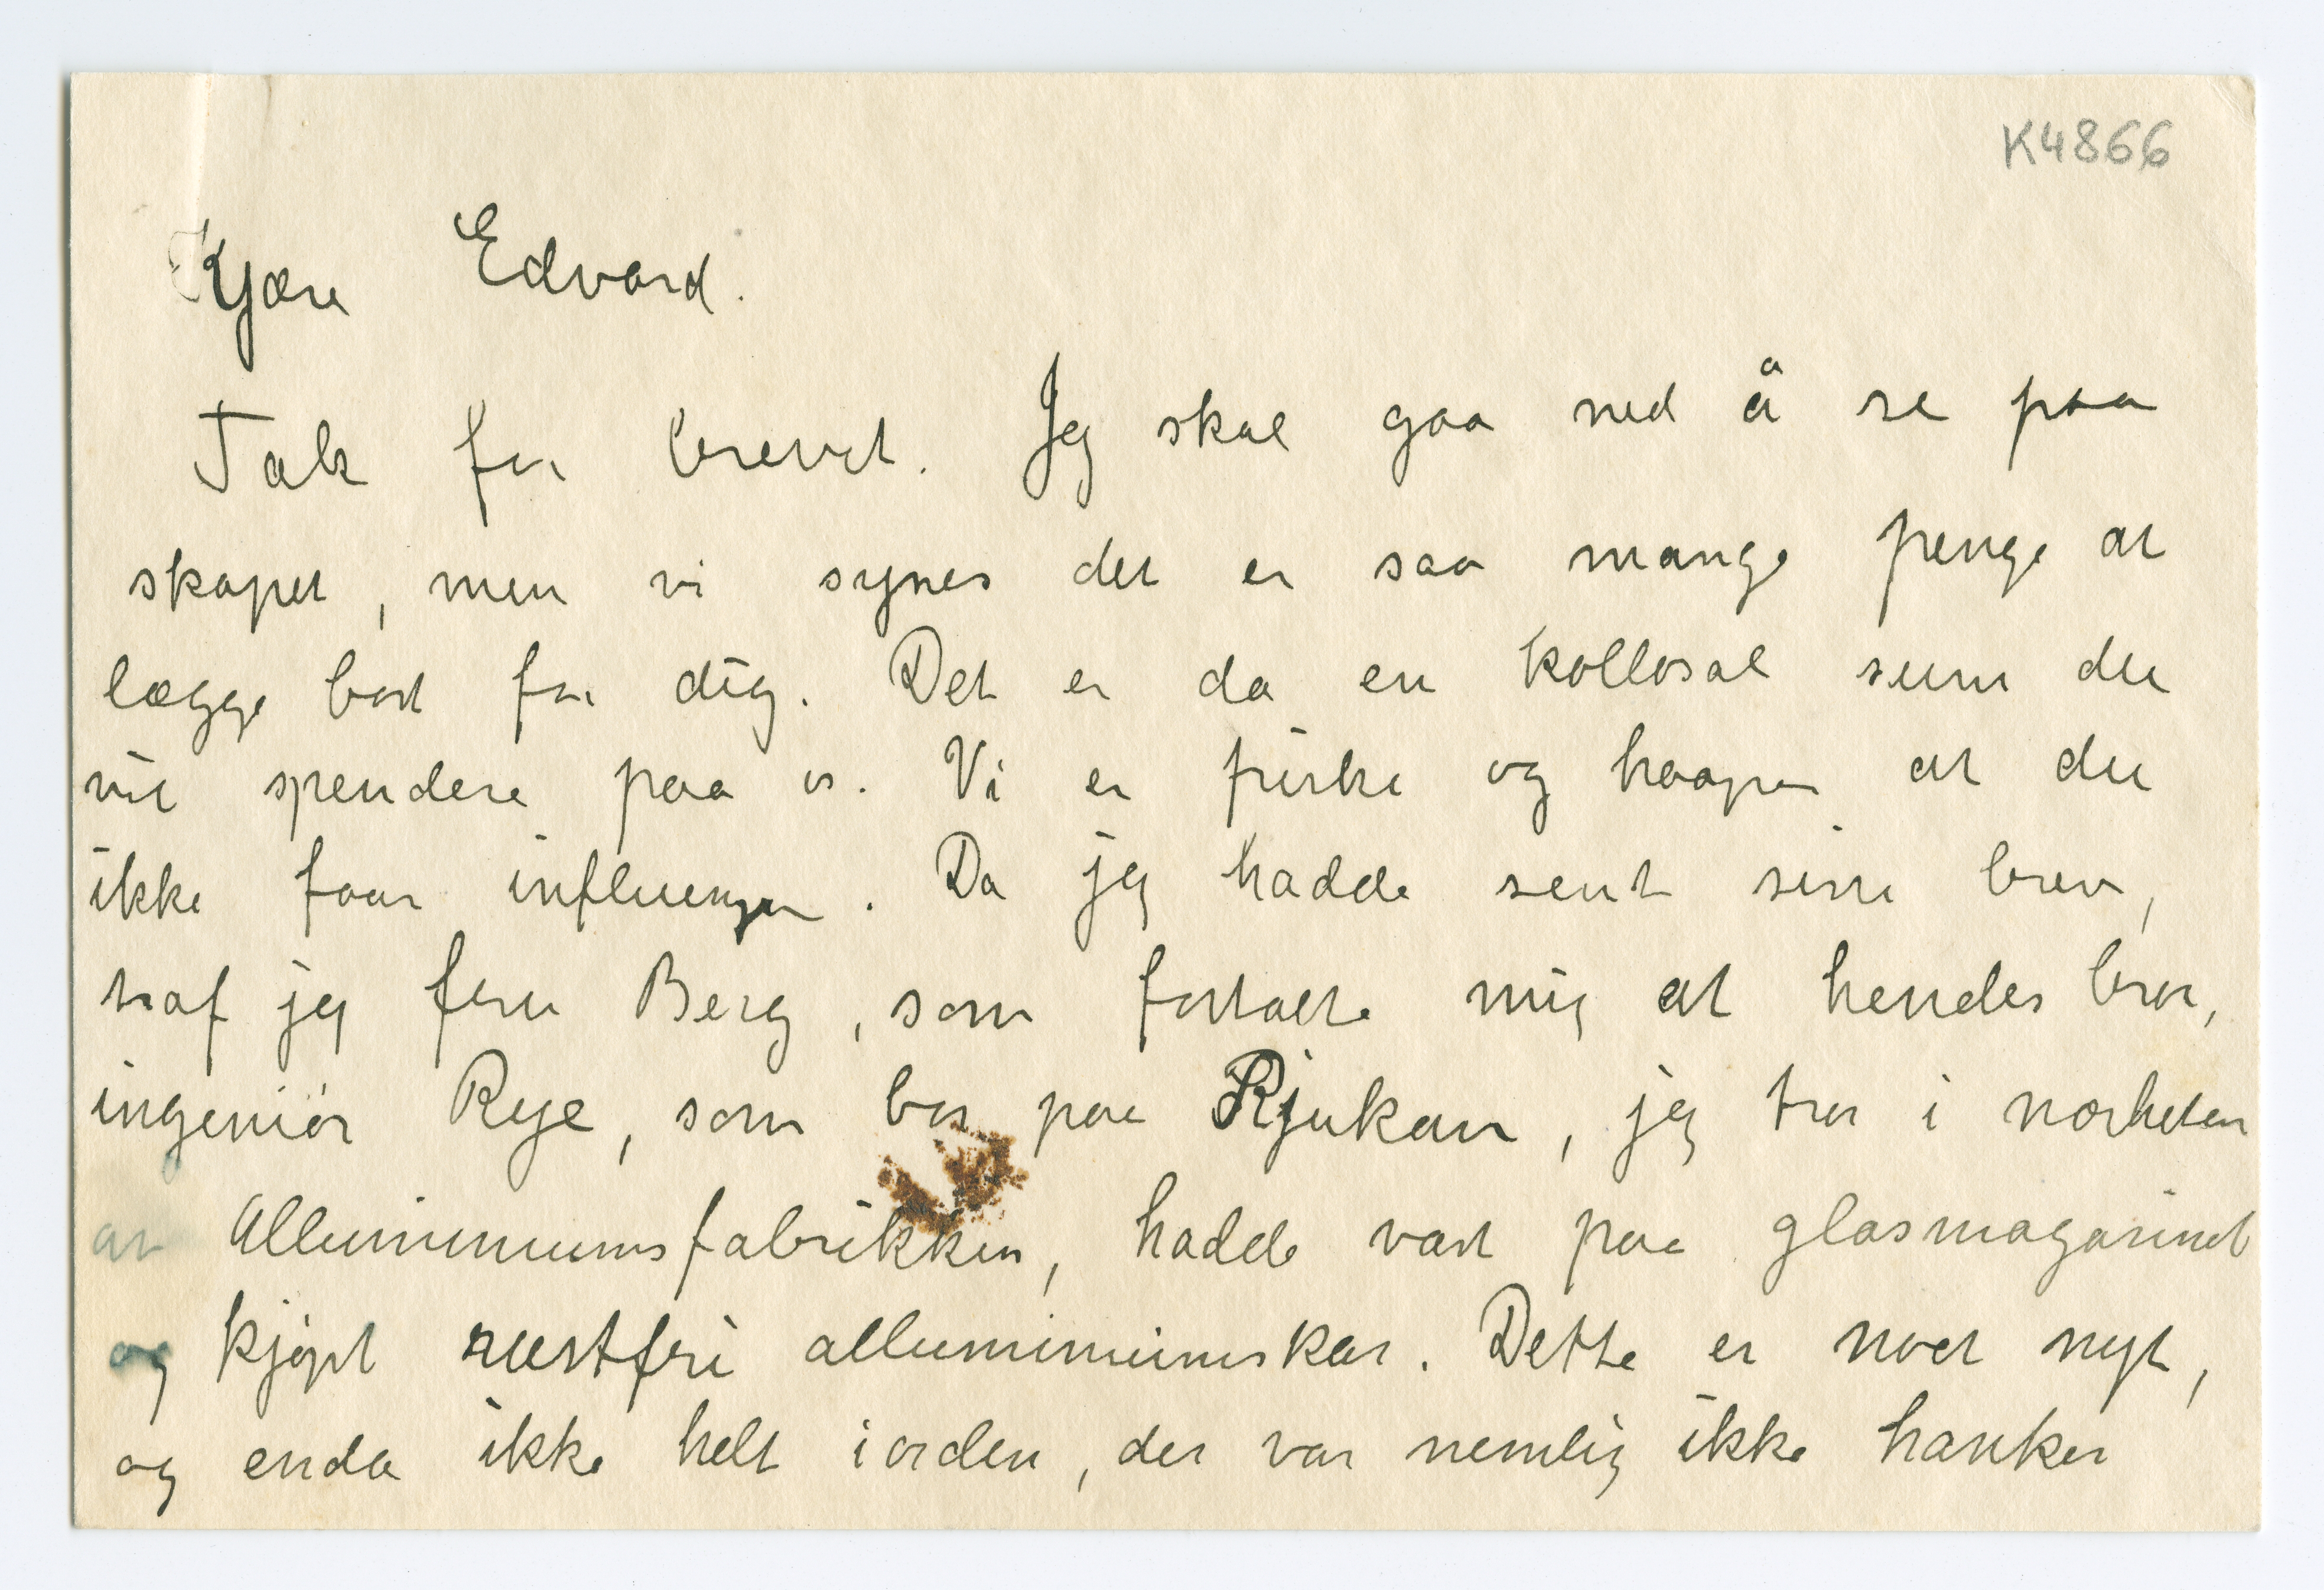 K4866
Kjære Edvard.
Tak for brevet. Jeg skal gaa ned å se paa
skapet, men vi synes det er saa mange penge at
lægge bort for dig. Det er da en kollosal sum du
vil spendere paa os. Vi er friske og haaper at du
ikke faar influenza. Da jeg hadde sent sine brev,
traf jeg fru Berg, som fortalte mig at hendes bror,
ingeniør Rye, som bor paa Rjukan, jeg tror i nærheten
av Alluminiumsfabrikken, hadde vært paa glasmagasinet
og kjøpt rustfri alluminiumskar. Dette er noet nyt,
og enda ikke helt iorden, der var nemlig ikke hanker